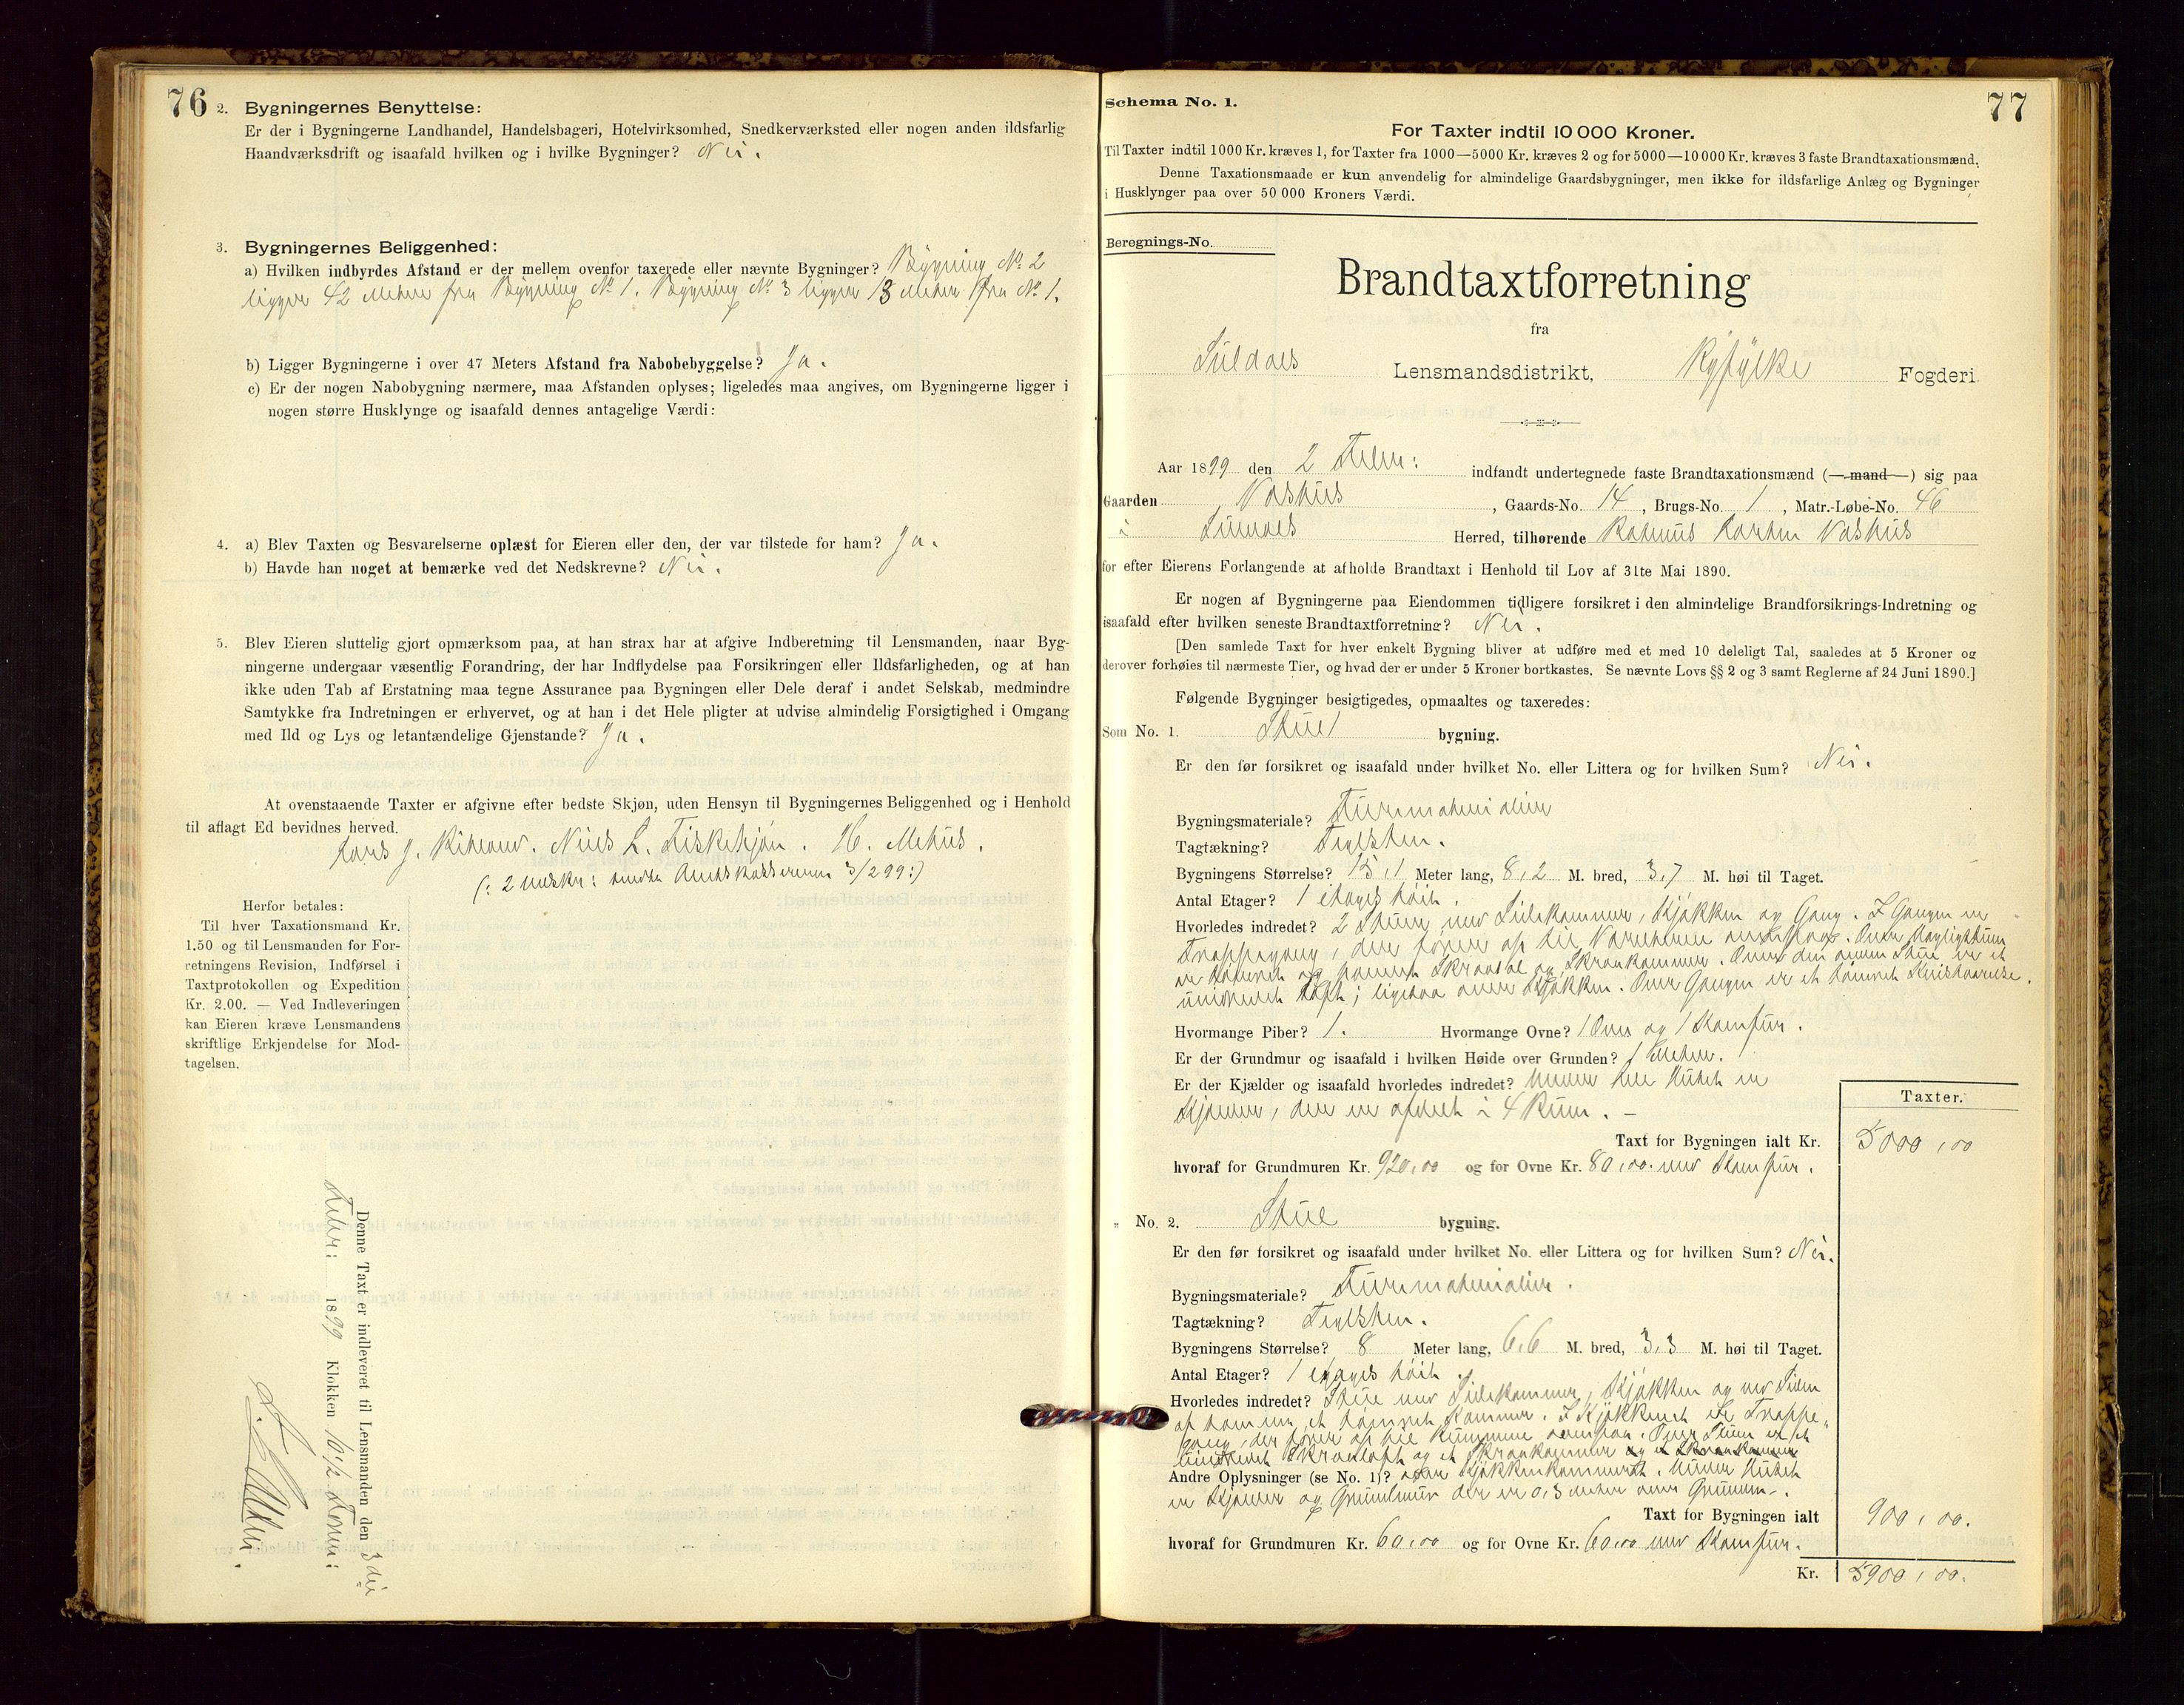 76
2. Bygningernes Benyttelse:
Er der i Bygningerne Landhandel, Handelsbageri, Hotelvirksomhed, Snedkerværksted eller nogen anden ildsfarlig
Haandværksdrift og isaafald hvilken og i hvilke Bygninger? Nei.
3. Bygningernes Beliggenhed:
a) Hvilken indbyrdes Afstand er der mellem ovenfor taxerede eller nævnte Bygninger? Bygning No. 2
ligger 42 Meter fra Bygning No. 1. Bygning No. 3 ligger 13 Meter fra No. 1.
b) Ligger Bygningerne i over 47 Meters Afstand fra Nabobebyggelse? Ja.
c) Er der nogen Nabobygning nærmere, maa Afstanden oplyses; ligeledes maa angives, om Bygningerne ligger i
nogen større Husklynge og isaafald dennes antagelige Værdi:
4. a) Blev Taxten og Besvarelserne oplæst for Eieren eller den, der var tilstede for ham? Ja.
b) Havde han noget at bemærke ved det Nedskrevne? Nei.
5. Blev Eieren sluttelig gjort opmærksom paa, at han strax har at afgive Indberetning til Lensmanden, naar Byg-
ningerne undergaar væsentlig Forandring, der har Indflydelse paa Forsikringen eller Ildsfarligheden, og at han
ikke uden Tab af Erstatning maa tegne Assurance paa Bygningen eller Dele deraf i andet Selskab, medmindre
Samtykke fra Indretningen er erhvervet, og at han i det Hele pligter at udvise almindelig Forsigtighed i Omgang
med Ild og Lys og letantændelige Gjenstande? Ja.
At ovenstaaende Taxter er afgivne efter bedste Skjøn, uden Hensyn til Bygningernes Beliggenhed og i Henhold
til aflagt Ed bevidnes herved.
Lars J. Niels L. Fisketjøn. H. Mehus.
(: 2 udskr: sendt Amtskassereren 3/2 99:)
Herfor betales:
Til hver Taxationsmand Kr.
1.50 og til Lensmanden for For-
retningens Revision, Indførsel i
Taxtprotokollen og Expedition
Kr. 2.00. — Ved Indleveringen
kan Eieren kræve Lensmandens
skriftlige Erkjendelse for Mod-
tagelsen.
Denne Taxt er indleveret til Lensmanden den 3die
Febr: 1899 Klokken 10 1/2 Form:
77
Schema No. 1.
For Taxter indtil 10 000 Kroner.
Til Taxter indtil 1000 Kr. kræves 1, for Taxter fra 1000—5000 Kr. kræves 2 og for 5000—10 000 Kr. kræves 3 faste Brandtaxationsmænd.
Denne Taxationsmaade er kun anvendelig for almindelige Gaardsbygninger, men ikke for ildsfarlige Anlæg og Bygninger
i Husklynger paa over 50 000 Kroners Værdi.
Beregnings-No.
Brandtaxtforretning
fra
Suldals Lensmandsdistrikt, Ryfylke Fogderi.
Aar 1899 den 2 Febr: indfandt undertegnede faste Brandtaxationsmænd (—mand—) sig paa
Gaarden Vashus, Gaards-No. 14, Brugs-No. 1, Matr.-Løbe-No. 46
i Suldals Herred, tilhørende Rasmus Larsen Vashus
for efter Eierens Forlangende at afholde Brandtaxt i Henhold til Lov af 31te Mai 1890.
Er nogen af Bygningerne paa Eiendommen tidligere forsikret i den almindelige Brandforsikrings-Indretning og
isaafald efter hvilken seneste Brandtaxtforretning? Nei.
[Den samlede Taxt for hver enkelt Bygning bliver at udføre med et med 10 deleligt Tal, saaledes at 5 Kroner og
derover forhøies til nærmeste Tier, og hvad der er under 5 Kroner bortkastes. Se nævnte Lovs §§ 2 og 3 samt Reglerne af 24 Juni 1890.]
Følgende Bygninger besigtigedes, opmaaltes og taxeredes:
Som No. 1. Stue bygning.
Er den før forsikret og isaafald under hvilket No. eller Littera og for hvilken Sum? Nei.
Bygningsmateriale? Furumaterialier
Tagtækning? Teglsten.
Bygningens Størrelse? 15,1 Meter lang, 8,2 M. bred, 3,7 M. høi til Taget.
Antal Etager? 1 etages høit.
Hvorledes indredet? 2 Stuer med Sidekammer, Kjøkken og Gang. I Gangen er
Trappegang, der fører op til Værelserne ovenpaa. Over Dagligstuen
er tømret og panelt Skraasal og Skraakammer. Over den anden Stue er et
uindredet Loft; ligesaa over Kjøkken. Over Gangen er et tømret Kvistværelse.
Hvormange Piber? 1. Hvormange Ovne? 1 Ovn og 1 Komfur.
Er der Grundmur og isaafald i hvilken Høide over Grunden? 1 Meter.
Er der Kjælder og isaafald hvorledes indredet? Under hele Huset er
Kjælder, der er afdelt i 4 Rum. —
Taxter.
Taxt for Bygningen ialt Kr. 5000,00
hvoraf for Grundmuren Kr. 920,00 og for Ovne Kr. 80,00. med Komfur.
" No. 2. Stue bygning.
Er den før forsikret og isaafald under hvilket No. eller Littera og for hvilken Sum? Nei.
Bygningsmateriale? Furumaterialier.
Tagtækning? Teglsten.
Bygningens Størrelse? 8 Meter lang, 6,6 M. bred, 3,3 M. høi til Taget.
Antal Etager? 1 etages høit.
Hvorledes indredet? Stue med Sidekammer, Kjøkken og ved Siden
af samme et tømret Kammer. I Kjøkkenet er Trappe-
gang, der fører op til Rummene ovenpaa. Over Stuen er et
uindredet Skraaloft og et Skraakammer og et Skraakammer
Andre Oplysninger (se No. 1)? over Kjøkkenkammeret. Under Huset
er Kjælder og Grundmur der er 0,3 Meter over Grunden.
Taxt for Bygningen ialt 900,00.
hvoraf for Grundmuren Kr. 60,00 og for Ovne Kr. 60,00 med Komfur.
Kr. 5900,00.